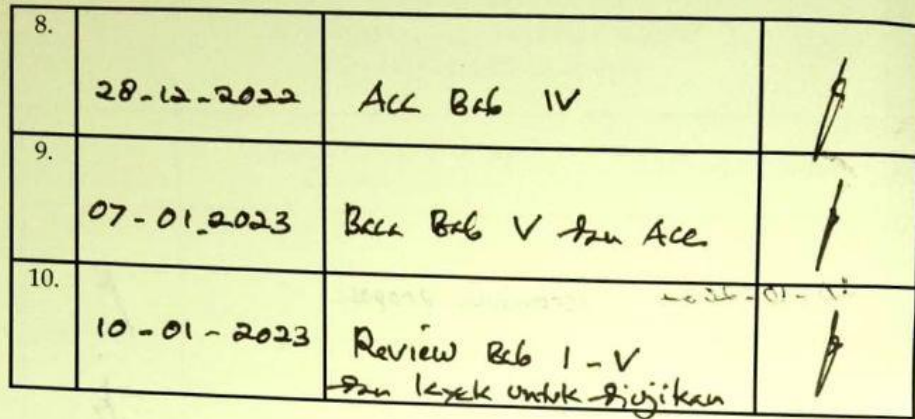 8.
28-12-2022 Acc Bab IV
9.
07-01-2023 Baca Bab V dan Acc
10.
10-01-2023 Review Bab I-V
dan layak untuk diujikan